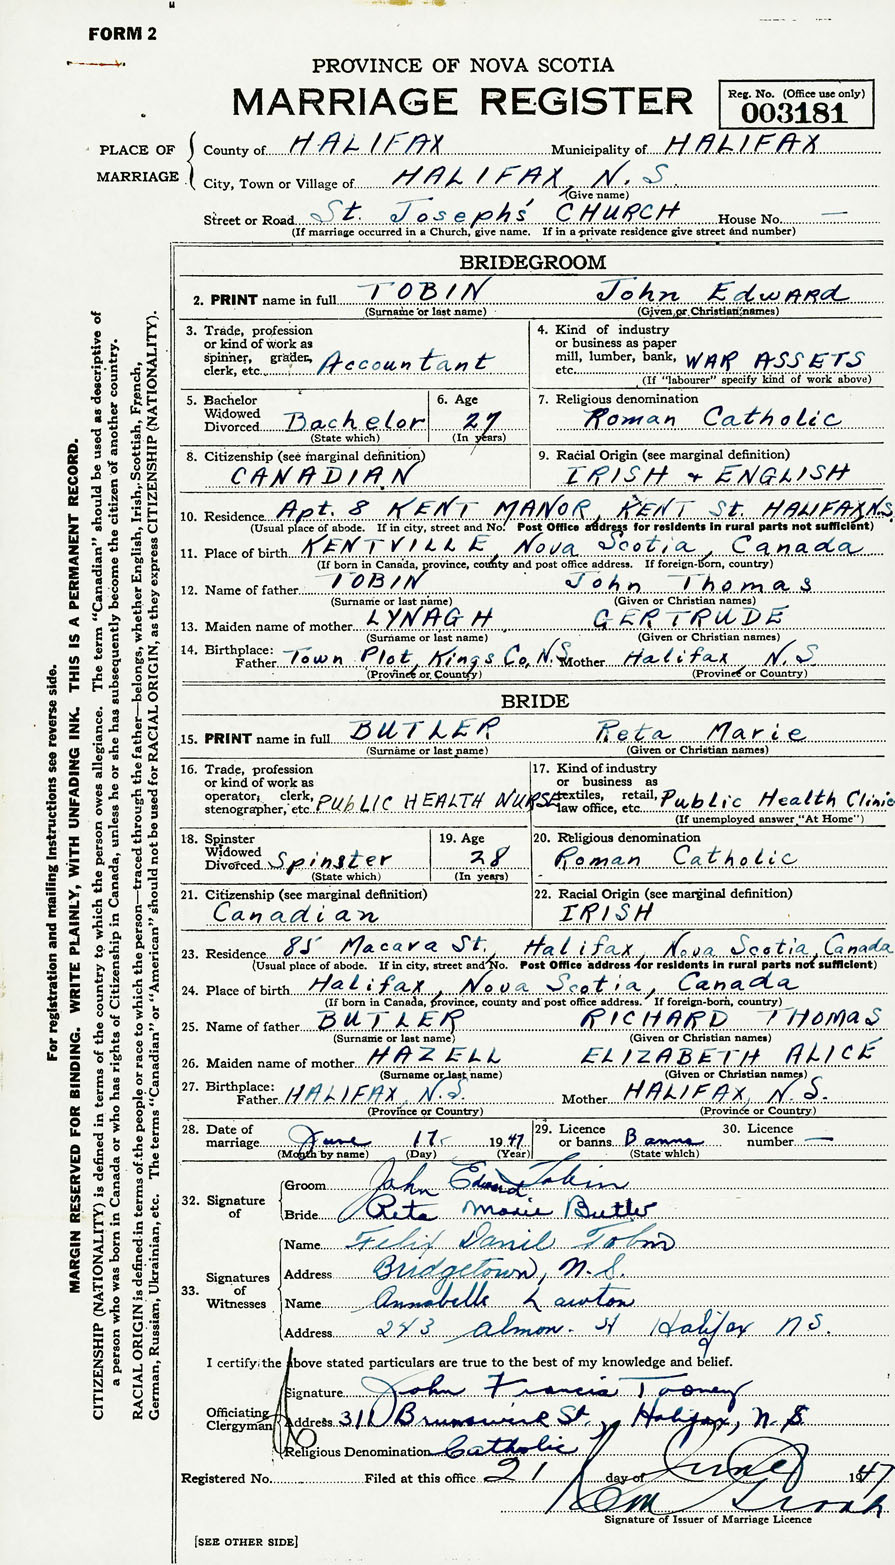 FORM 2
PROVINCE OF NOVA SCOTIA
MARRIAGE REGISTER
Reg. No. (Office use only)
003181
PLACE OF MARRIAGE
County of HALIFAX Municipality of HALIFAX
City, Town or Village of HALIFAX, N.S.
(Give name)
Street or Road St. Joseph's CHURCH House No. —
(If marriage occurred in a Church, give name. If in a private residence give street and number)
BRIDEGROOM
2. PRINT name in full TOBIN John EdwARD
(Surname or last name) (Given or Christian names)
3. Trade, profession or kind of work as spinner, grader, clerk, etc. Accountant
4. Kind of industry or business as paper mill, lumber, bank, etc. WAR ASSETS
(If "labourer" specify kind of work above)
5. Bachelor Widowed Divorced Bachelor
(State which)
6. Age 27
(In years)
7. Religious denomination
Roman Catholic
8. Citizenship (see marginal definition)
CANADIAN
9. Racial Origin (see marginal definition)
IRISH + ENGLISH
10. Residence Apt. 8 KENT MANOR, KENT St. HALIFAX NS
(Usual place of abode. If in city, street and No. Post Office address for residents in rural parts not sufficient)
11. Place of birth KENTVILLE, Nova Scotia, Canada
(If born in Canada, province, county and post office address. If foreign-born, country)
12. Name of father TOBIN John Thomas
(Surname or last name) (Given or Christian names)
13. Maiden name of mother LYNAGH GERTRUDE
(Surname or last name) (Given or Christian names)
14. Birthplace: Father Town Plot, Kings Co, N.S. Mother Halifax, N.S
(Province or Country) (Province or Country)
BRIDE
15. PRINT name in full BUTLER Reta Marie
(Surname or last name) (Given or Christian names)
16. Trade, profession or kind of work as operator, clerk, stenographer, etc. PUbLIC HEALTH NURSE
17. Kind of industry or business as textiles, retail, law office, etc. Public Health Clinic
(If unemployed answer "At Home")
18. Spinster Widowed Divorced Spinster
(State which)
19. Age 28
(In years)
20. Religious denomination
Roman Catholic
21. Citizenship (see marginal definition)
Canadian
22. Racial Origin (see marginal definition)
IRISH
23. Residence 85 Macara St., Halifax, Nova Scotia, Canada
(Usual place of abode. If in city, street and No. Post Office address for residents in rural parts not sufficient)
24. Place of birth Halifax, Nova Scotia, Canada
(If born in Canada, province, county and post office address. If foreign-born, country)
25. Name of father BUTLER RICHARD THOMAS
(Surname or last name) (Given or Christian names)
26. Maiden name of mother HAZELL ELIZABETH ALICE
(Surname or last name) (Given or Christian names)
27. Birthplace: Father HALIFAX, N.S. Mother HALIFAX, N.S.
(Province or Country) (Province or Country)
28. Date of marriage June 17 1947
(Month by name) (Day) (Year)
29. Licence or banns Banns
(State which)
30. Licence number —
32. Signature of
Groom John Edward Tobin
Bride Reta Marie Butler
33. Signatures of Witnesses
Name Felix Daniel Tobin
Address Bridgetown, N.S.
Name Annabelle Lawton
Address 243 Almon St Halifax NS.
I certify the above stated particulars are true to the best of my knowledge and belief.
Officiating Clergyman
Signature John Francis Tooney
Address 311 Brunswick St., Halifax, N.S
Religious Denomination Catholic
Registered No. Filed at this office 21 day of June 1947
Signature of Issuer of Marriage Licence
[SEE OTHER SIDE]
For registration and mailing instructions see reverse side.
MARGIN RESERVED FOR BINDING. WRITE PLAINLY, WITH UNFADING INK. THIS IS A PERMANENT RECORD.
CITIZENSHIP (NATIONALITY) is defined in terms of the country to which the person owes allegiance. The term "Canadian" should be used as descriptive of
a person who was born in Canada or who has rights of Citizenship in Canada, unless he or she has subsequently become the citizen of another country.
RACIAL ORIGIN is defined in terms of the people or race to which the person—traced through the father—belongs, whether English, Irish, Scottish, French,
German, Russian, Ukrainian, etc. The terms "Canadian" or "American" should not be used for RACIAL ORIGIN, as they express CITIZENSHIP (NATIONALITY).